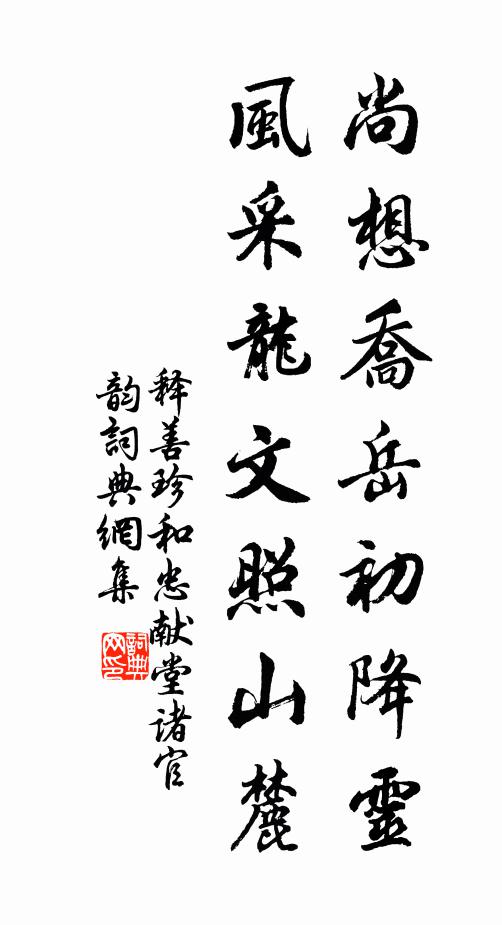 尚想喬岳初降靈
風采龍文照山麓
释善珍和忠献堂诸官
韵词典網集
詞典
网印